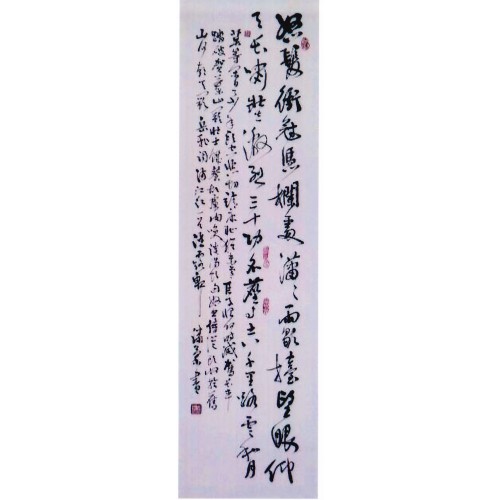 怒髮衝冠憑欄處瀟〻雨歇擡望眼仰
天長嘯壯激烈三十功名塵与土八千里路雲和月
莫等閒白了少年頭空悲切靖康恥猶未雪臣子恨何時滅駕長車
踏破賀蘭山缺壯志飢餐胡虜肉笑談渴飲匈奴血待從頭收拾舊
山河朝天闕 岳飛詞滿江紅一首
書